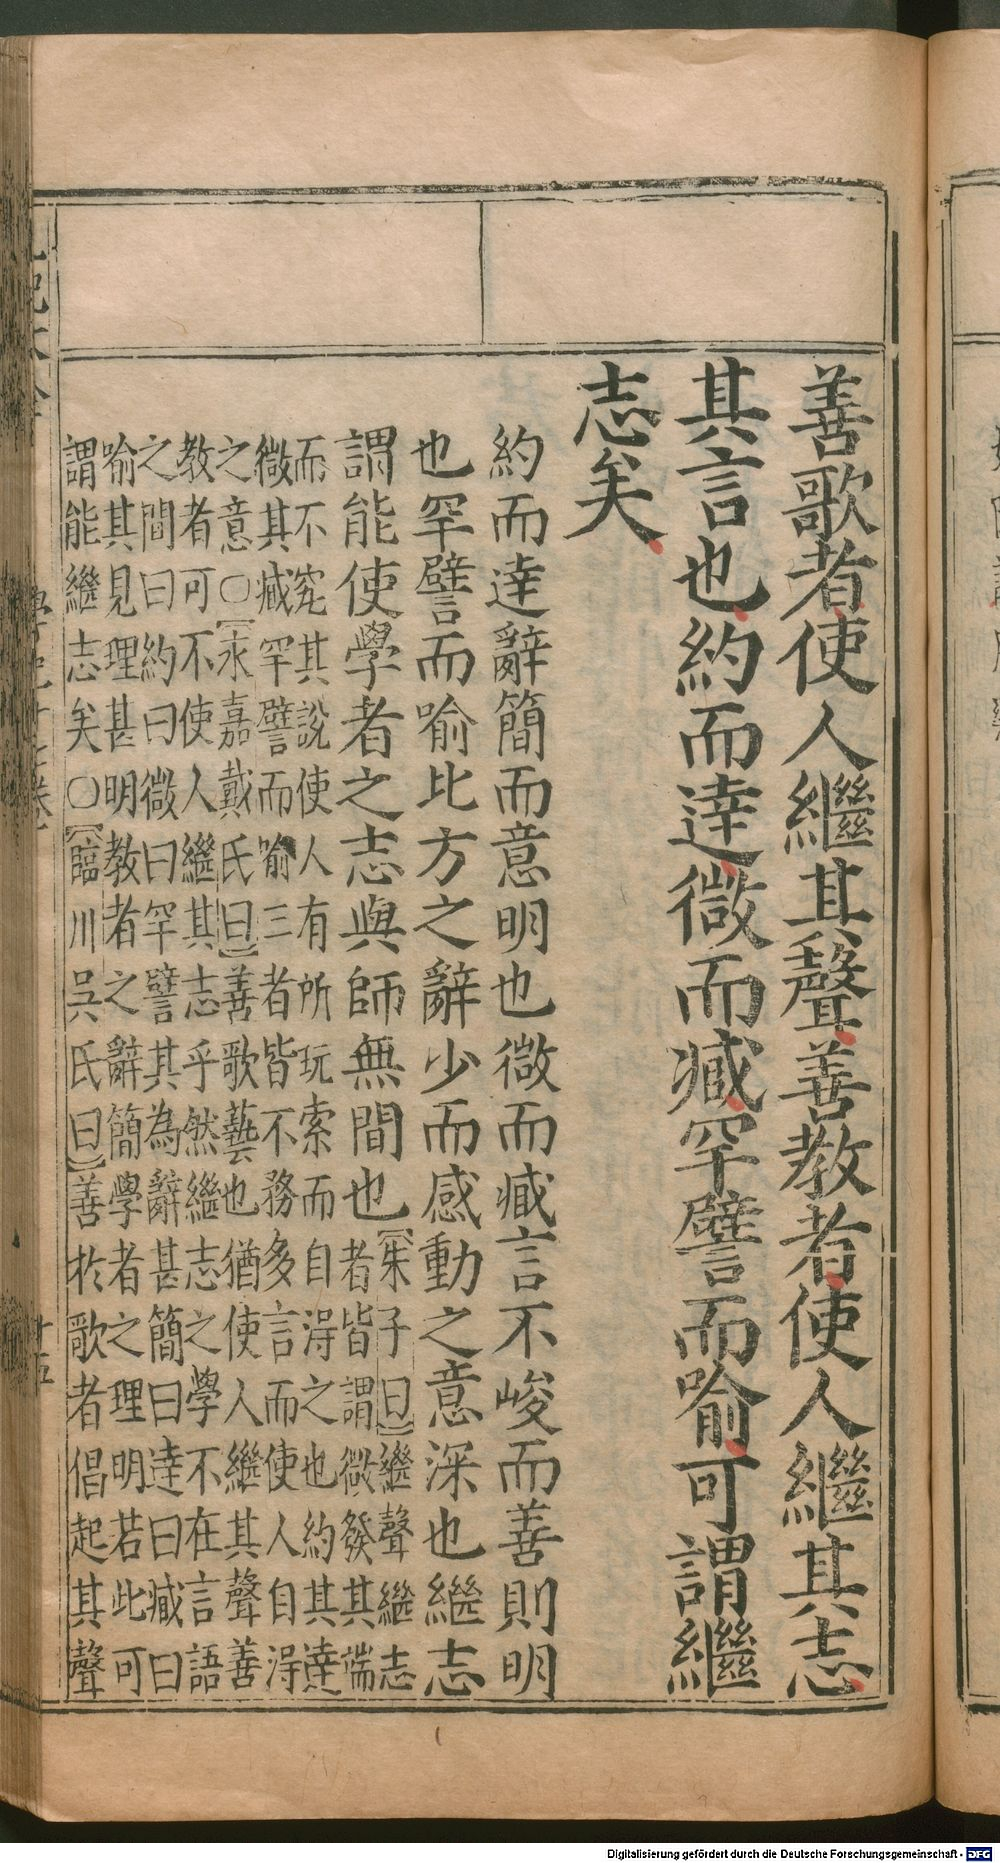 善歌者使人繼其聲善教者使人繼其志
其言也約而達微而臧罕譬而喻可謂繼
志矣
約而達辭簡而意明也微而臧言不峻而善則明
也罕譬而喻比方之辭少而感動之意深也繼志
謂能使學者之志與師無間也
【朱子曰】繼聲繼志
者皆謂微發其端
而不究其說使人有所玩索而自得之也約其達
微其臧罕譬而喻三者皆不務多言而使人自得
之意○【永嘉戴氏曰】善歌藝也猶使人繼其聲善
教者可不使人繼其志乎然繼志之學不在言語
之間曰約曰微曰罕譬其為辭甚簡曰達曰臧曰
喻其見理甚明教者之辭簡學者之理明若此可
謂能繼志矣○【臨川吳氏曰】善於歌者倡起其聲
十五
Digitalisierung gefördert durch die Deutsche Forschungsgemeinschaft - DFG